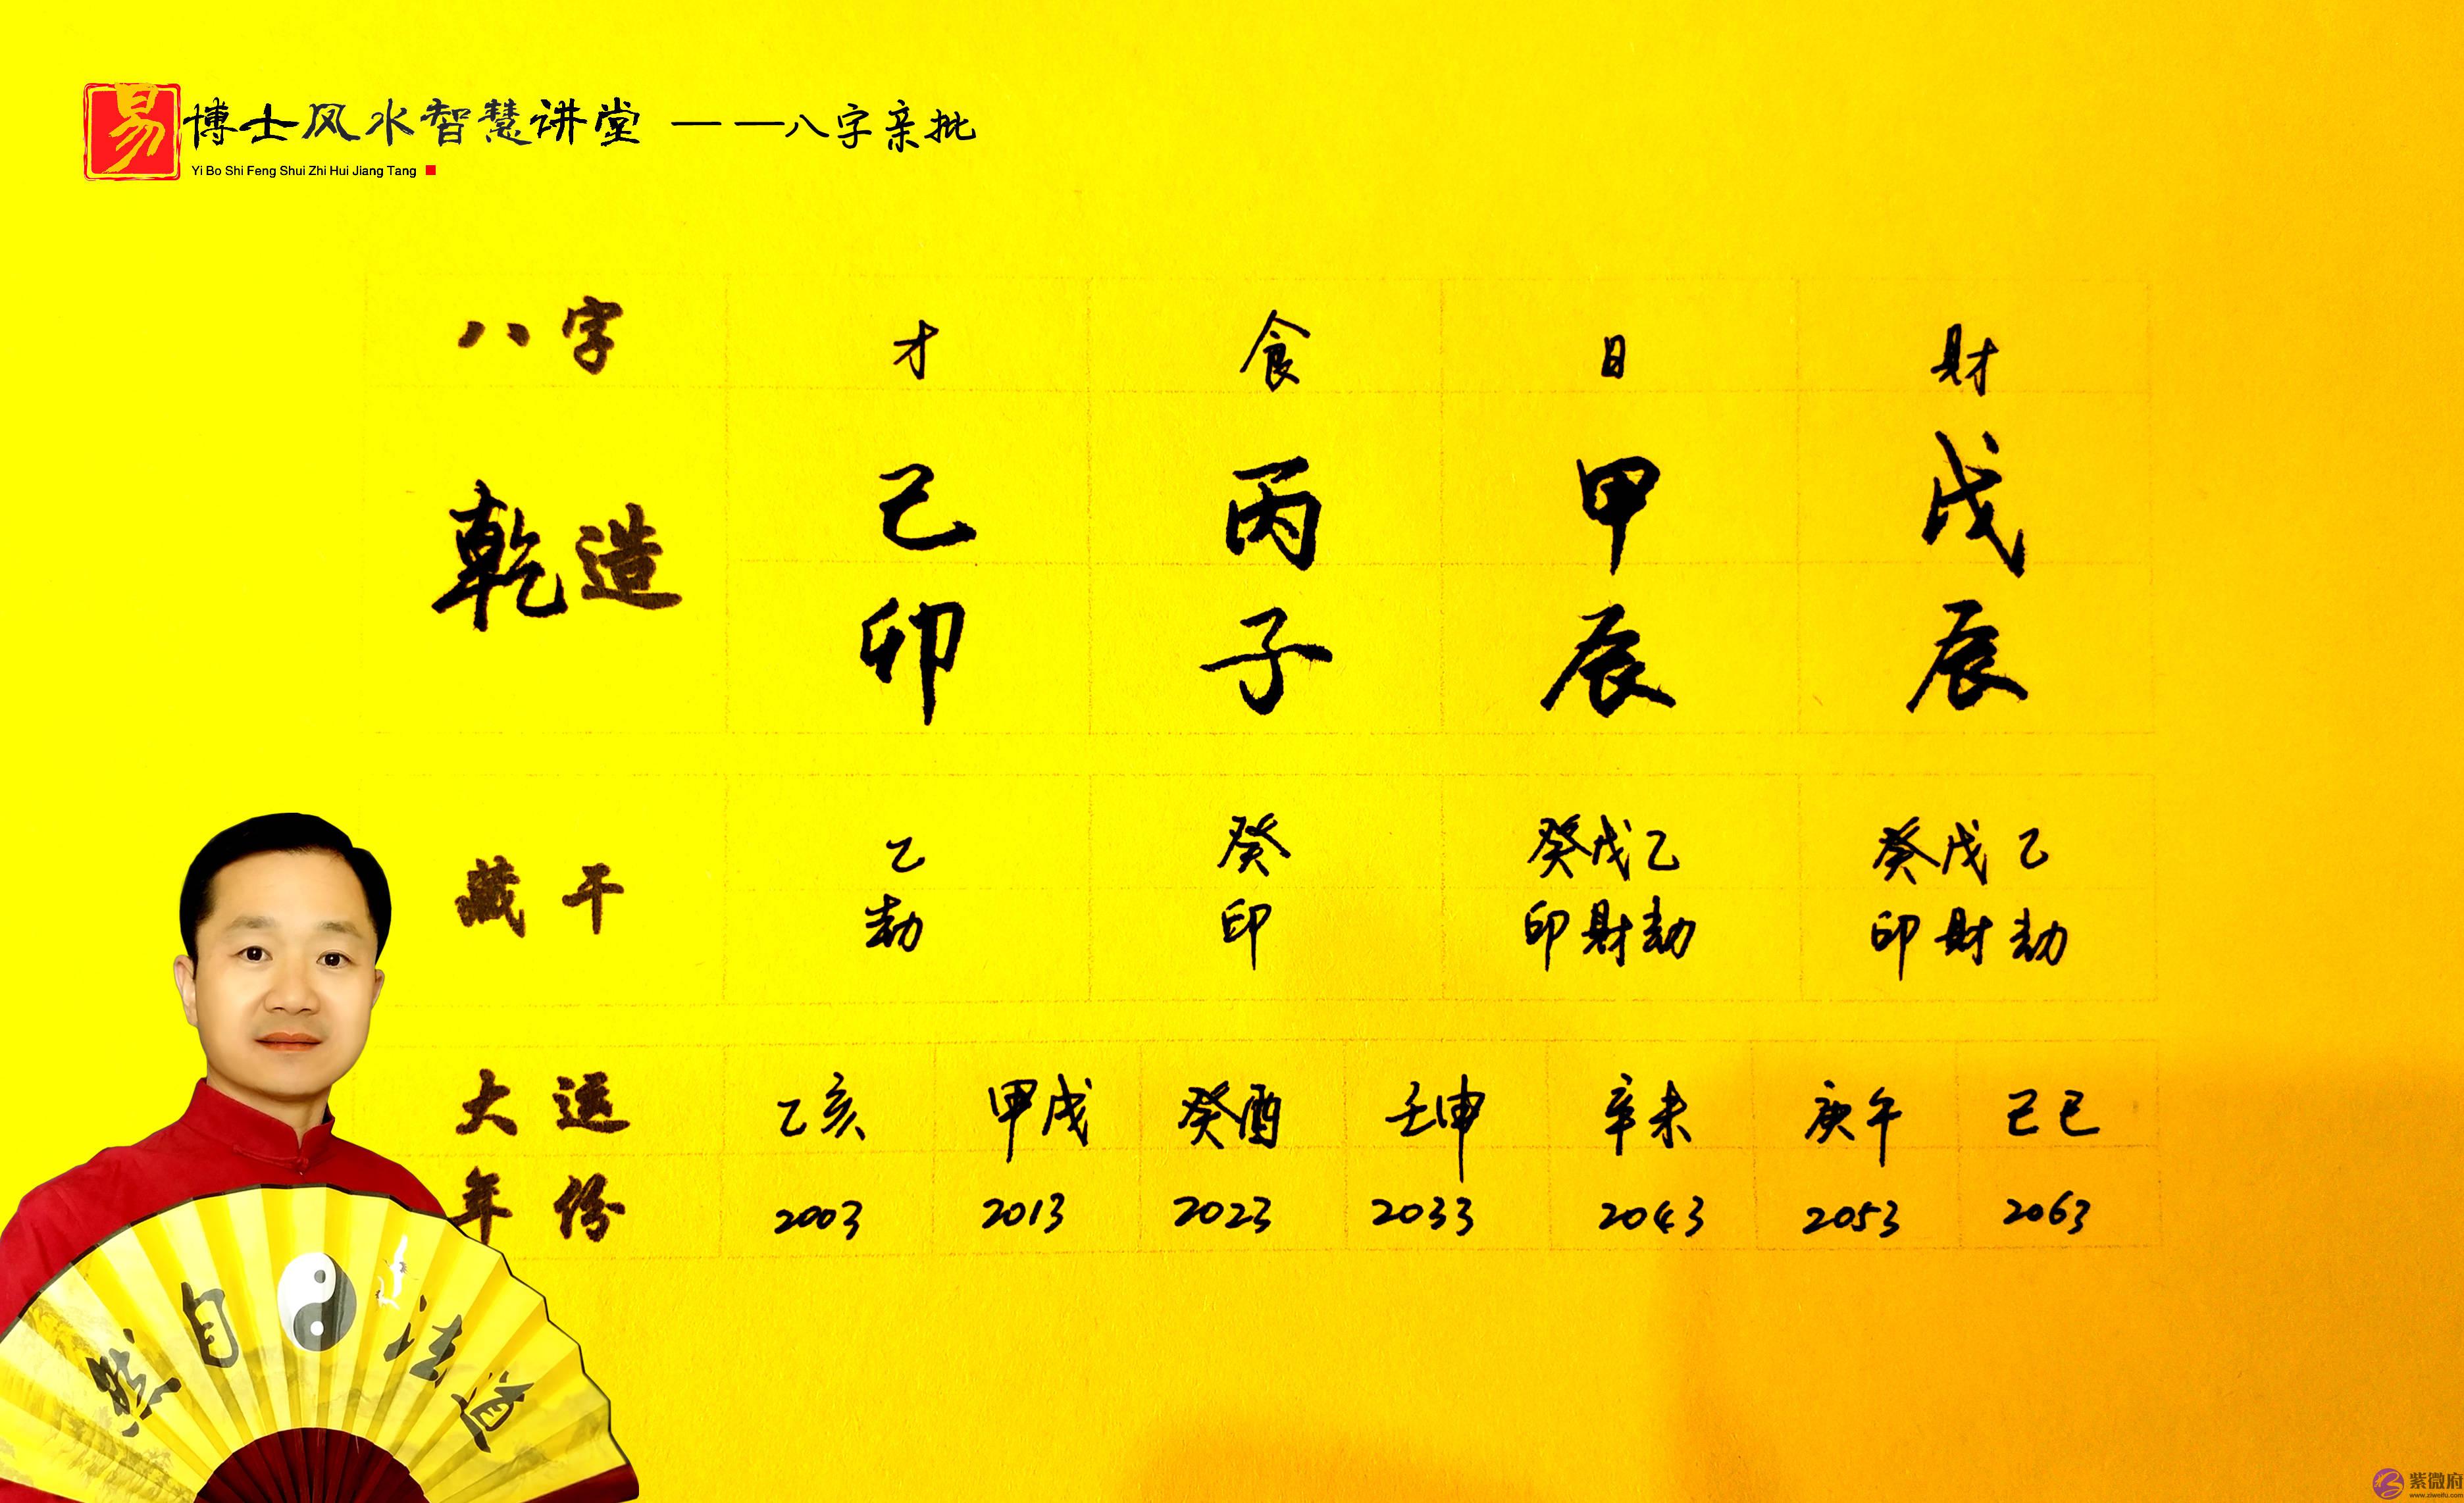 易博士风水智慧讲堂 ——八字亲批
Yi Bo Shi Feng Shui Zhi Hui Jiang Tang
八字 才 食 日 财
乾造 己 丙 甲 戊
卯 子 辰 辰
藏干 乙 癸 癸戊乙 癸戊乙
劫 印 印财劫 印财劫
大运 乙亥 甲戌 癸酉 壬申 辛未 庚午 己巳
年份 2003 2013 2023 2033 2043 2053 2063
道法自然
紫微府
www.ziweifu.com